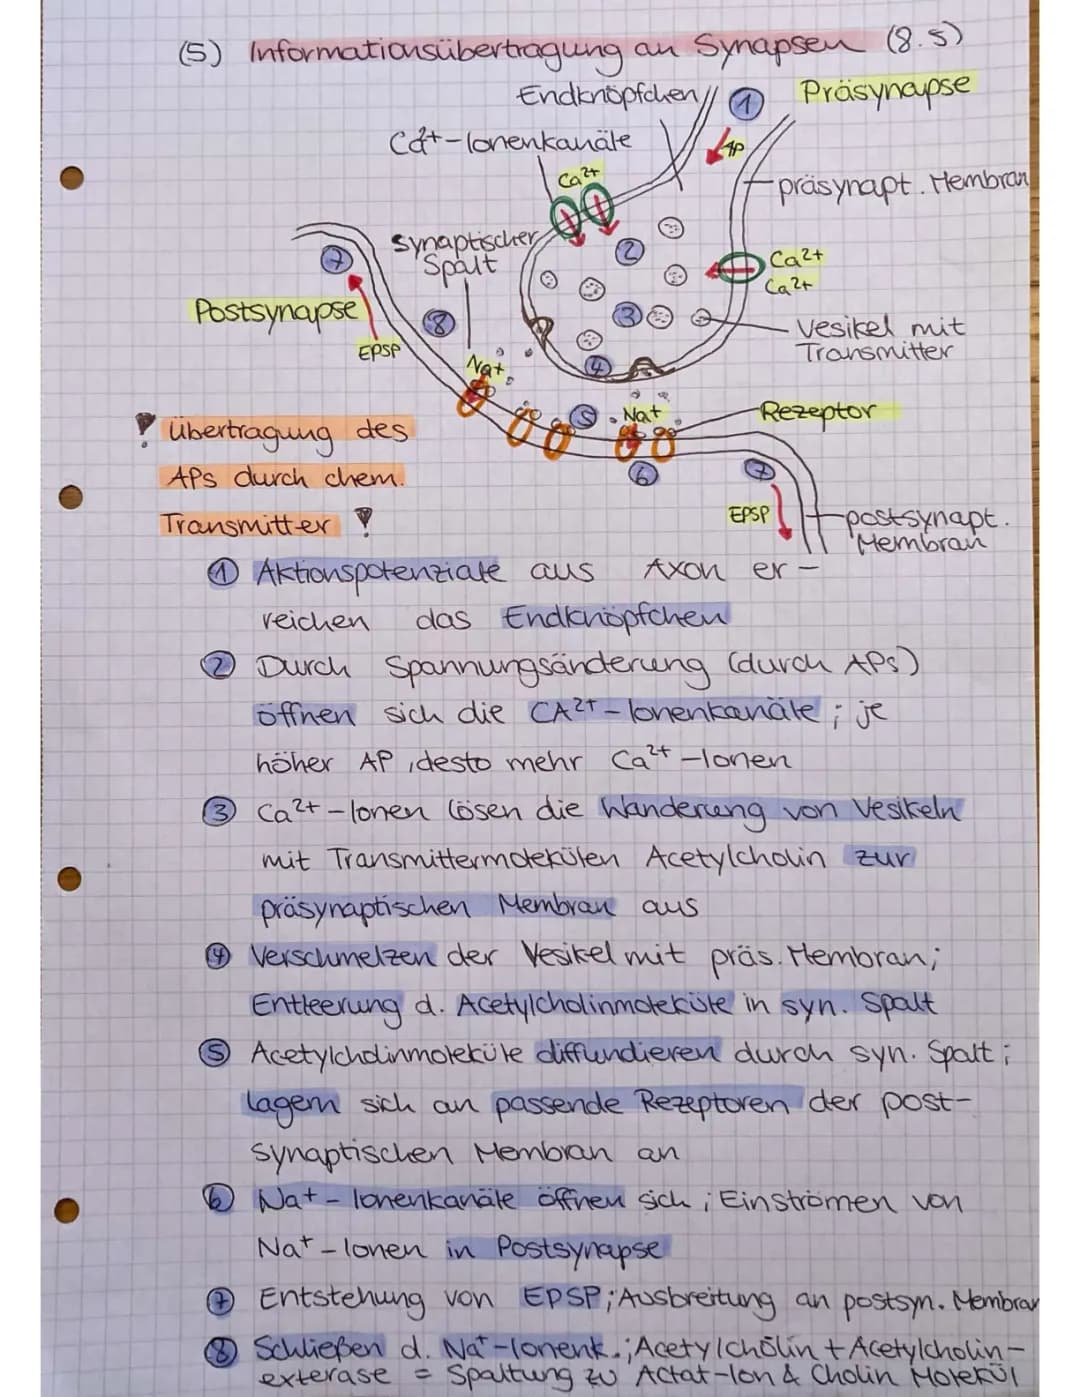 (5) Informationsübertragung an Synapsen (8.5)
Endknöpfchen
1
Präsynapse
Ca²⁺-Ionenkanäle
AP
Ca²⁺
präsynapt. Membran
synaptischer
Spalt
2
7
Ca²⁺
Ca²⁺
Postsynapse
8
3
Vesikel mit
Transmitter
EPSP
Na⁺
4
! Übertragung des
APs durch chem.
Transmitter !
5
Na⁺
Rezeptor
6
7
EPSP
postsynapt.
Membran
① Aktionspotenziale aus Axon er-
reichen das Endknöpfchen
② Durch Spannungsänderung (durch APs)
öffnen sich die CA²⁺-Ionenkanäle; je
höher AP, desto mehr Ca²⁺-Ionen
③ Ca²⁺-Ionen lösen die Wanderung von Vesikeln
mit Transmittermolekülen Acetylcholin zur
präsynaptischen Membran aus
④ Verschmelzen der Vesikel mit präs. Membran;
Entleerung d. Acetylcholinmoleküle in syn. Spalt
⑤ Acetylcholinmoleküle diffundieren durch syn. Spalt;
lagern sich an passende Rezeptoren der post-
synaptischen Membran an
⑥ Na⁺-Ionenkanäle öffnen sich; Einströmen von
Na⁺-Ionen in Postsynapse
⑦ Entstehung von EPSP; Ausbreitung an postsyn. Membran
⑧ Schließen d. Na⁺-Ionenk.; Acetylcholin + Acetylcholin-
exterase = Spaltung zu Actat-Ion & Cholin Molekül